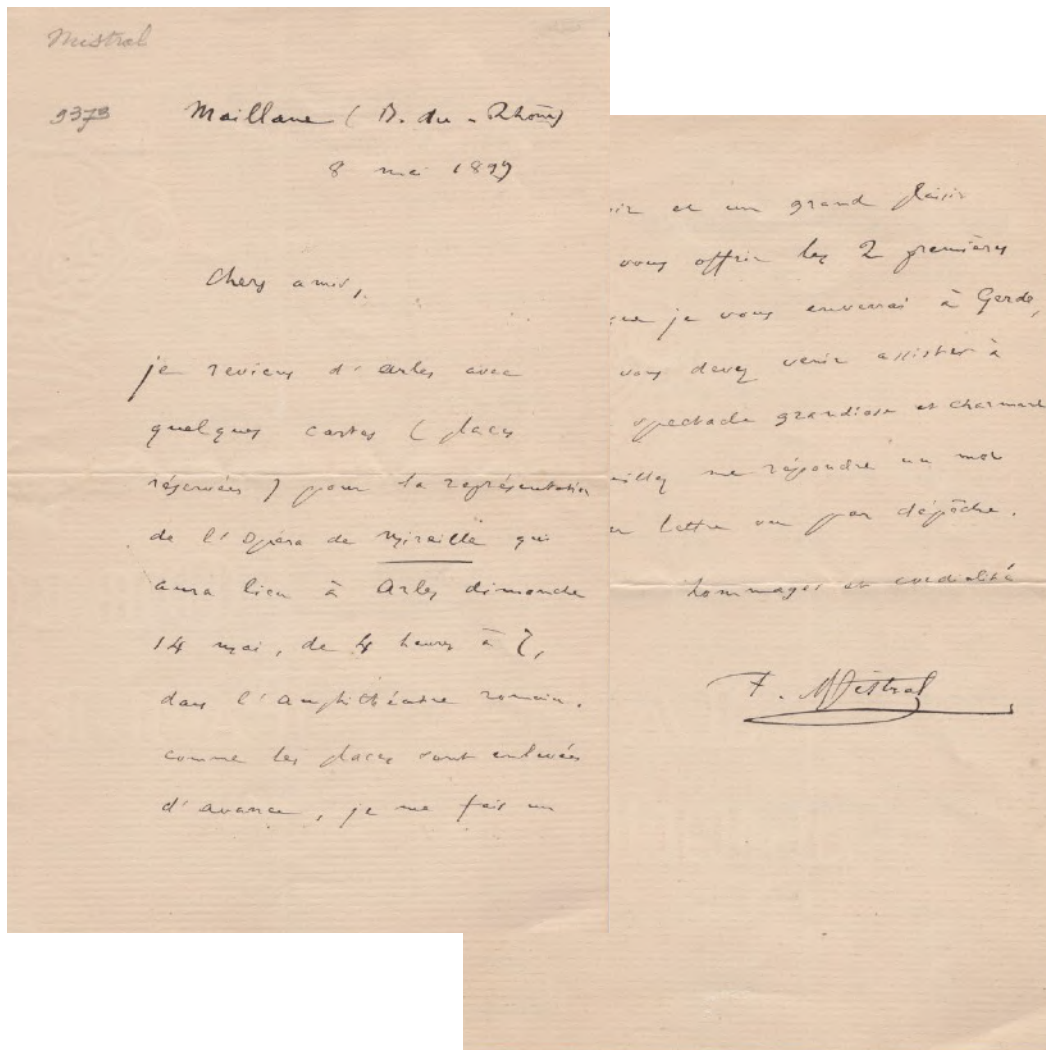 Mistral
9373
Maillane (B. du-Rhône)
8 mai 1899
Chers amis,
je reviens d'Arles avec
quelques cartes (places
réservées) pour la représentation
de l'Opéra de Mireille qui
aura lieu à Arles dimanche
14 mai, de 4 heures à 7,
dans l'Amphithéatre romain.
comme les places sont enlevées
d'avance, je me fais un
oir et un grand plaisir
vous offrir les 2 premières
que je vous enverrai à Gerde,
vous devez venir assister à
spectacle grandiose et charmant
euillez me répondre un mot
lettre ou par dépêche.
hommages et cordialité
F. Mistral